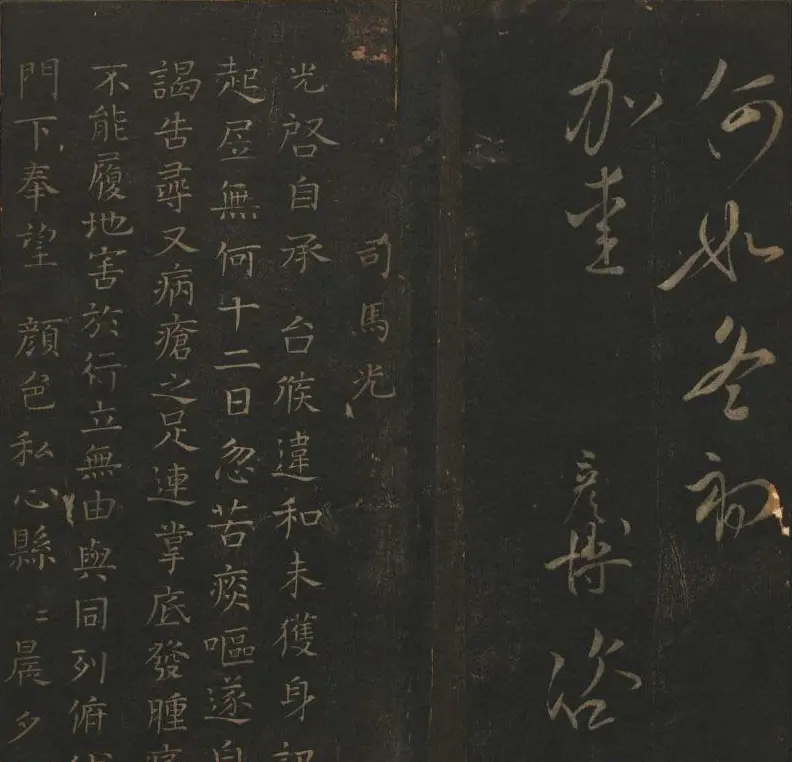 何如冬初
加重
彦博咨
司馬光
光啓自承 台候違和未獲身
起居無何十二日忽苦痰嘔遂自
謁告尋又病瘡之足連掌底發腫
不能履地害於行立無由與同列俯
門下奉望 顔色私心縣〻晨夕